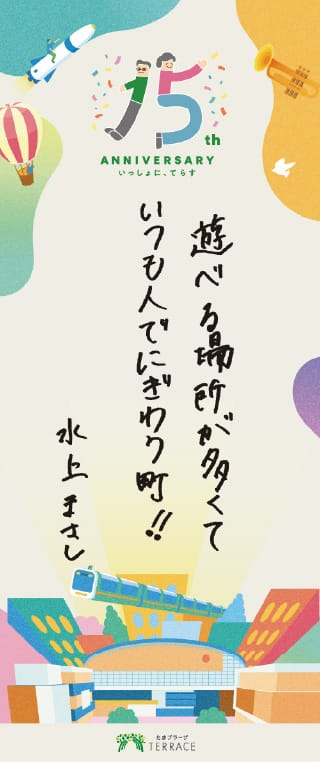 15th
ANNIVERSARY
いっしょに、てらす
遊べる場所が多くて
いつも人でにぎわう町!!
水上まさし
たまプラーザ
TERRACE